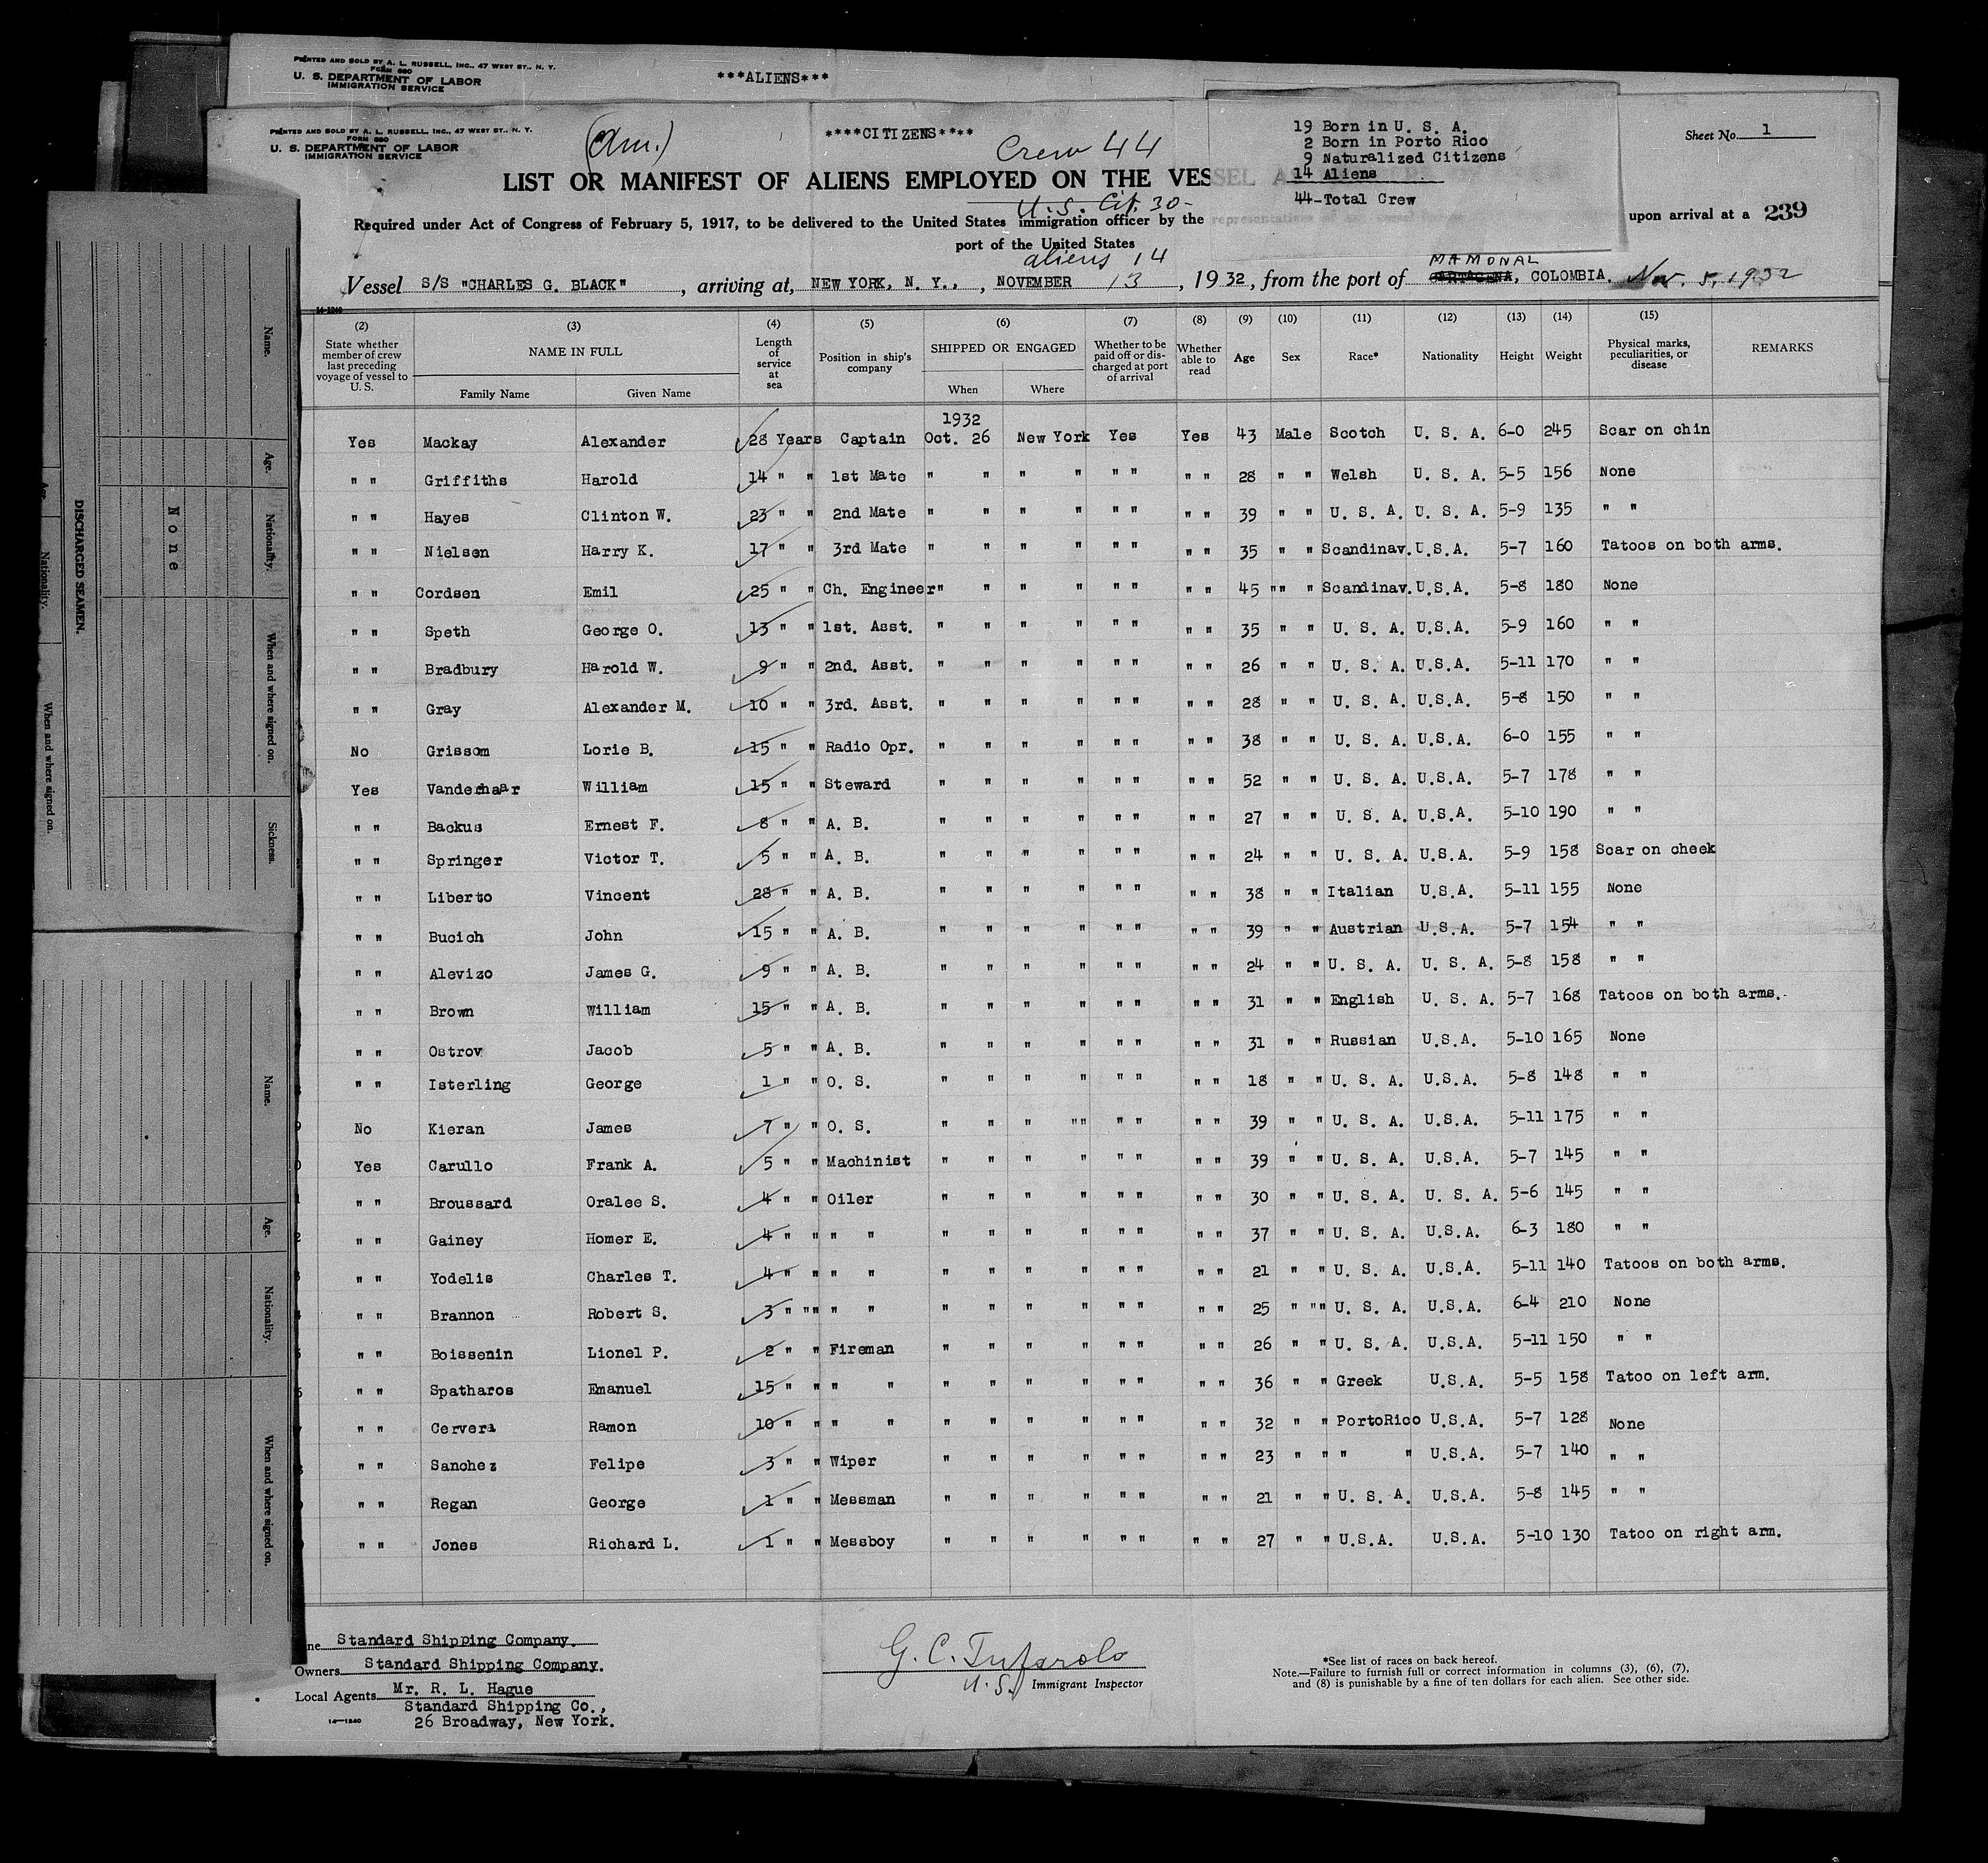 PRINTED AND SOLD BY A. L. RUSSELL, INC., 47 WEST ST., N. Y.
FORM 680
U. S. DEPARTMENT OF LABOR
IMMIGRATION SERVICE
***ALIENS***
PRINTED AND SOLD BY A. L. RUSSELL, INC., 47 WEST ST., N. Y.
FORM 680
U. S. DEPARTMENT OF LABOR
IMMIGRATION SERVICE
(Am.)
****CITIZENS****
Crew 44
19 Born in U. S. A.
2 Born in Porto Rico
9 Naturalized Citizens
14 Aliens
44-Total Crew
Sheet No. 1
LIST OR MANIFEST OF ALIENS EMPLOYED ON THE VESSEL
U.S. Cit. 30-
Required under Act of Congress of February 5, 1917, to be delivered to the United States immigration officer by the representations of upon arrival at a 239
port of the United States
aliens 14
Vessel S/S "CHARLES G. BLACK", arriving at, NEW YORK, N. Y., , NOVEMBER 13, 1932, from the port of MAMONAL CARTAGENA, COLOMBIA. Nov. 5, 1932
14-1240
(2) (3) (4) (5) (6) (7) (8) (9) (10) (11) (12) (13) (14) (15)
State whether member of crew last preceding voyage of vessel to U. S. NAME IN FULL Family Name Given Name Length of service at sea Position in ship's company SHIPPED OR ENGAGED When Where Whether to be paid off or discharged at port of arrival Whether able to read Age Sex Race* Nationality Height Weight Physical marks, peculiarities, or disease REMARKS
1932
Yes Mackay Alexander 28 Years Captain Oct. 26 New York Yes Yes 43 Male Scotch U. S. A. 6-0 245 Scar on chin
" " Griffiths Harold 14 " " 1st Mate " " " " " " " " 28 " " Welsh U. S. A. 5-5 156 None
" " Hayes Clinton W. 23 " " 2nd Mate " " " " " " " " 39 " " U. S. A. U. S. A. 5-9 135 " "
" " Nielsen Harry K. 17 " " 3rd Mate " " " " " " " " 35 " " Scandinav. U.S.A. 5-7 160 Tatoos on both arms.
" " Cordsen Emil 25 " " Ch. Engineer " " " " " " " " 45 "" " Scandinav. U.S.A. 5-8 180 None
" " Speth George O. 13 " " 1st. Asst. " " " " " " " " 35 " " U. S. A. U.S.A. 5-9 160 " "
" " Bradbury Harold W. 9 " " 2nd. Asst. " " " " " " " " 26 " " U. S. A. U.S.A. 5-11 170 " "
" " Gray Alexander M. 10 " " 3rd. Asst. " " " " " " " " 28 " " U. S. A. U.S.A. 5-8 150 " "
No Grissom Lorie B. 15 " " Radio Opr. " " " " " " " " 38 " " U. S. A. U.S.A. 6-0 155 " "
Yes Vanderhaar William 15 " " Steward " " " " " " " " 52 " " U. S. A. U.S.A. 5-7 178 " "
" " Backus Ernest F. 8 " " A. B. " " " " " " " " 27 " " U. S. A. U.S.A. 5-10 190 " "
" " Springer Victor T. 5 " " A. B. " " " " " " " " 24 " " U. S. A. U.S.A. 5-9 158 Scar on cheek
" " Liberto Vincent 28 " " A. B. " " " " " " " " 38 " " Italian U.S.A. 5-11 155 None
" " Bucich John 15 " " A. B. " " " " " " " " 39 " " Austrian U.S.A. 5-7 154 " "
" " Alevizo James G. 9 " " A. B. " " " " " " " " 24 " " U. S. A. U. S. A. 5-8 158 " "
" " Brown William 15 " " A. B. " " " " " " " " 31 " " English U. S. A. 5-7 168 Tatoos on both arms.
" " Ostrov Jacob 5 " " A. B. " " " " " " " " 31 " " Russian U.S.A. 5-10 165 None
" " Isterling George 1 " " O. S. " " " " " " " " 18 " " U. S. A. U.S.A. 5-8 148 " "
No Kieran James 7 " " O. S. " " " "" " " " " 39 " " U. S. A. U.S.A. 5-11 175 " "
Yes Carullo Frank A. 5 " " Machinist " " " " " " " " 39 " " U. S. A. U.S.A. 5-7 145 " "
" " Broussard Oralee S. 4 " " Oiler " " " " " " " " 30 " " U. S. A. U. S. A. 5-6 145 " "
" " Gainey Homer E. 4 " " " " " " " " " " " " 37 " " U. S. A. U.S.A. 6-3 180 " "
" " Yodelis Charles T. 4 " " " " " " " " " " " " 21 " " U. S. A. U.S.A. 5-11 140 Tatoos on both arms.
" " Brannon Robert S. 3 " "" " " " " " " " " " " 25 " "" U. S. A. U.S.A. 6-4 210 None
" " Boissenin Lionel P. 2 " " Fireman " " " " " " " " 26 " " U. S. A. U.S.A. 5-11 150 " "
" " Spatharos Emanuel 15 " " " " " " " " " " " " 36 " " Greek U.S.A. 5-5 158 Tatoo on left arm.
" " Cervera Ramon 10 " " " " " " " " " " " " 32 " " PortoRico U.S.A. 5-7 128 None
" " Sanchez Felipe 3 " " Wiper " " " " " " " " 23 " " " " U.S.A. 5-7 140 " "
" " Regan George 1 " " Messman " " " " " " " " 21 " " U. S. A. U.S.A. 5-8 145 " "
" " Jones Richard L. 1 " " Messboy " " " " " " " " 27 " " U.S.A. U.S.A. 5-10 130 Tatoo on right arm.
Standard Shipping Company.
Owners Standard Shipping Company.
Local Agents Mr. R. L. Hague
Standard Shipping Co.,
26 Broadway, New York.
14-1240
U. S. Immigrant Inspector
*See list of races on back hereof.
Note.—Failure to furnish full or correct information in columns (3), (6), (7),
and (8) is punishable by a fine of ten dollars for each alien. See other side.
DISCHARGED SEAMEN.
Name. Age. Nationality. When and where signed on. Sickness.
None
Age. Nationality. When and where signed on.
Name. Age. Nationality. When and where signed on.